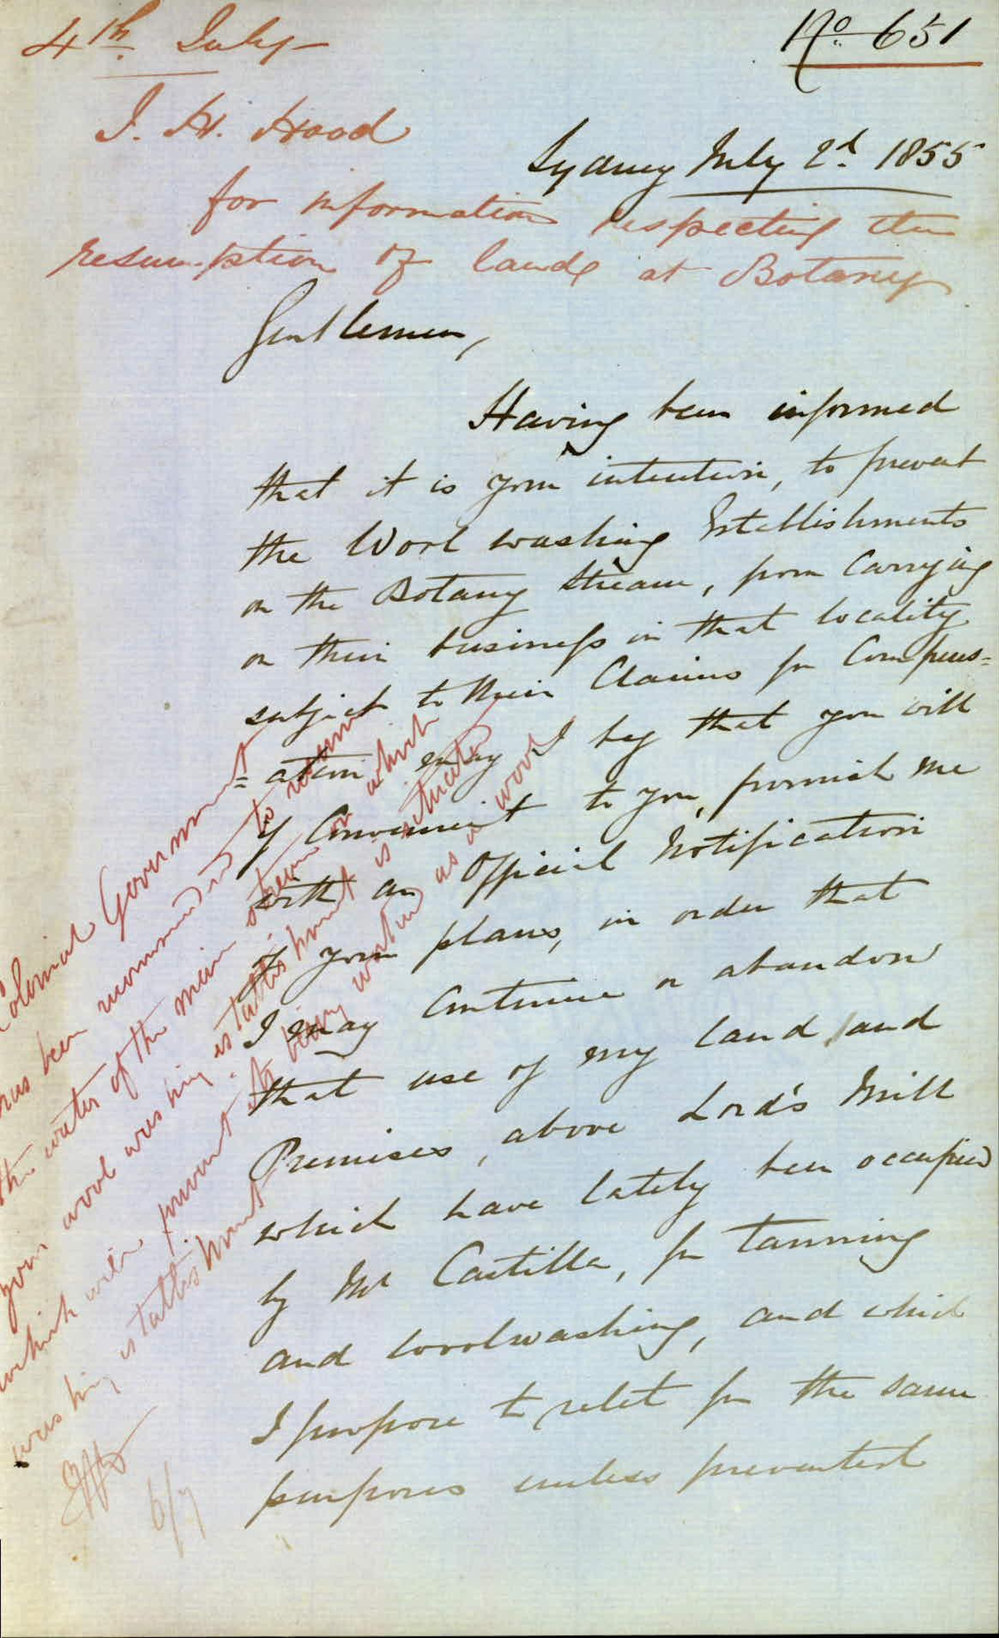 4th July
No. 651
J. H. Hood
Sydney July 2d. 1855
for information respecting the
resumption of lands at Botany
Gentlemen,
Having been informed
that it is your intention, to prevent
the Wool washing Establishments
on the Botany Stream, from Carrying
on their business in that locality
subject to their Claims for Compens=
=ation may I beg that you will
if Convenient to you, furnish me
with an Official Notification
of your plans, in order that
I may Continue or abandon
that use of my land and
Premises, above Lord's Mill
which have lately been occupied
by Mr Castilla, for tanning
and woolwashing, and which
I propose to relet for the same
purposes unless prevented
Colonial Government
has been recommended to resume
the water of the main stream on which
your wool washing establishment is situated
which will prevent its being worked as a wool
washing establishment
6/7